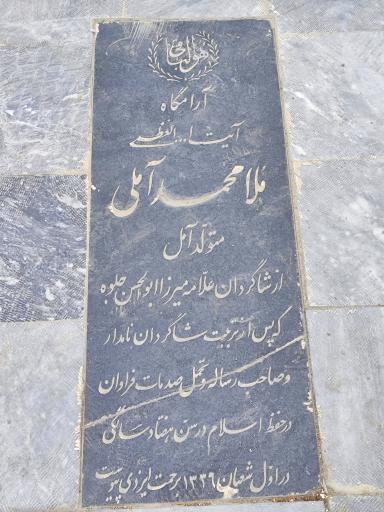 هو الباقی
آرامگاه
آیت الله العظمی
ملا محمد آملی
متولد آمل
از شاگردان علامه میرزا ابوالحسن جلوه
که پس از تربیت شاگردان نامدار
و صاحب رساله و تحمل صدمات فراوان
در حفظ اسلام در سن هفتاد سالگی
در اول شعبان ۱۳۳۶ برحمت ایزدی پیوست